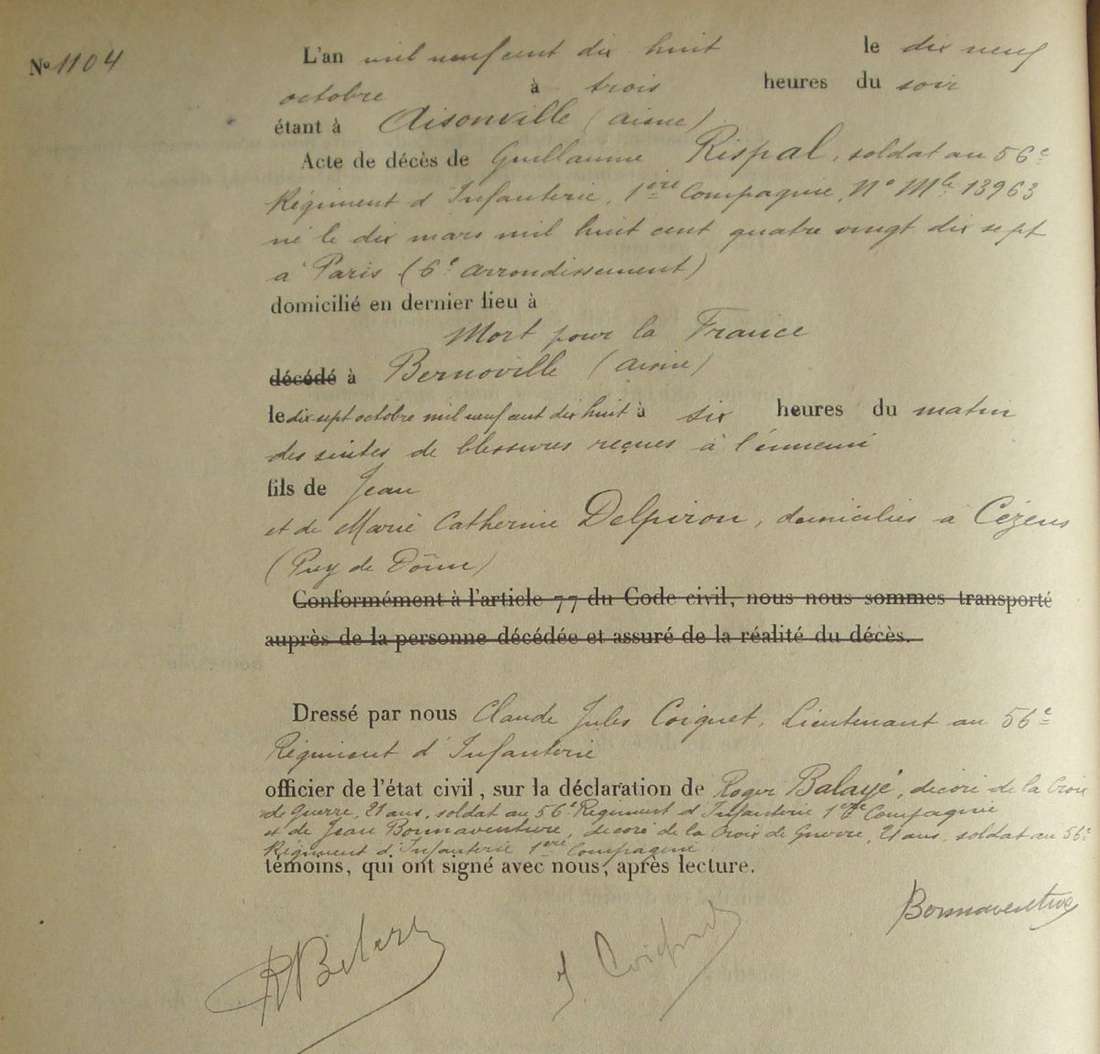 N° 1104
L'an mil neuf cent dix huit le dix neuf
octobre à trois heures du soir
étant à Aisonville (Aisne)
Acte de décès de Guillaume Rispal, soldat au 56e
Régiment d'Infanterie, 1ère Compagnie, N° Mle 13963
né le dix mars mil huit cent quatre vingt dix sept
à Paris (6e arrondissement)
domicilié en dernier lieu à
Mort pour la France
décédé à Bernoville (Aisne)
le dix sept octobre mil neuf cent dix huit à six heures du matin
des suites de blessures reçues à l'ennemi
fils de Jean
et de Marie Catherine Delpiron, domiciliés à Cézens
(Puy de Dôme)
Conformément à l'article 77 du Code civil, nous nous sommes transporté
auprès de la personne décédée et assuré de la réalité du décès.
Dressé par nous Claude Jules Coignet, Lieutenant au 56e
Régiment d'Infanterie
officier de l'état civil, sur la déclaration de Roger Balayé, décoré de la Croix
de Guerre, 21 ans, soldat au 56e Régiment d'Infanterie 1ère Compagnie
et de Jean Bonnaventure, décoré de la Croix de Guerre, 21 ans, soldat au 56e
Régiment d'Infanterie 1ère Compagnie
témoins, qui ont signé avec nous, après lecture.
Bonnaventure
J. Coignet